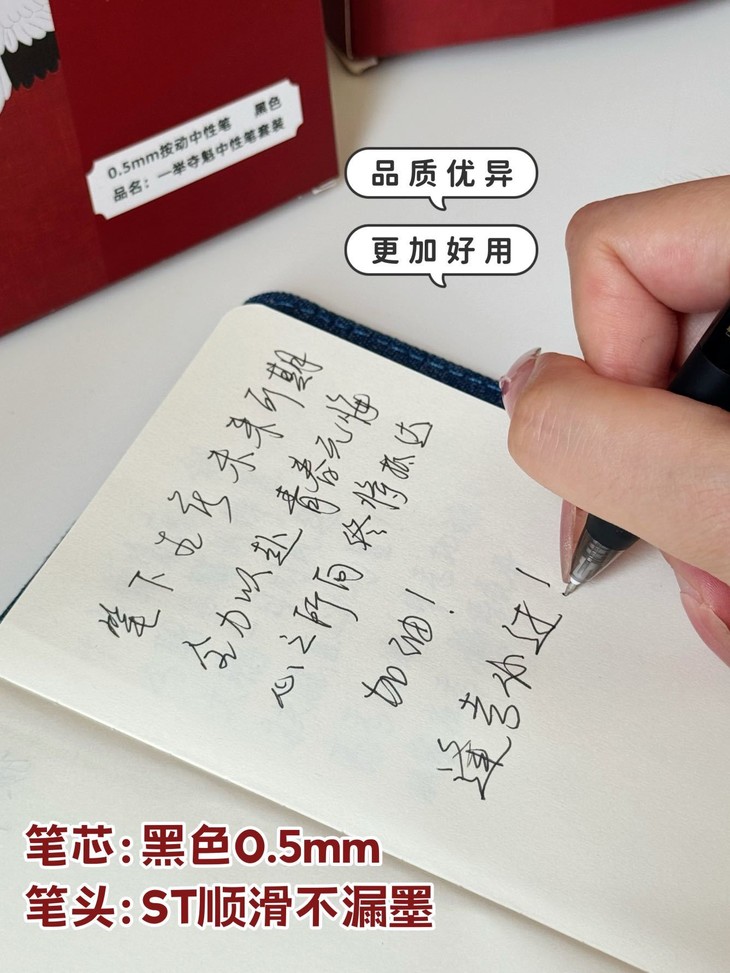 0.5mm按动中性笔 黑色
品名：一举夺魁中性笔套装
品质优异
更加好用
笔下 未来可期
全力以赴 青春无悔
心之所向 终将抵达
加油！
逢考必过！
笔芯：黑色0.5mm
笔头：ST顺滑不漏墨